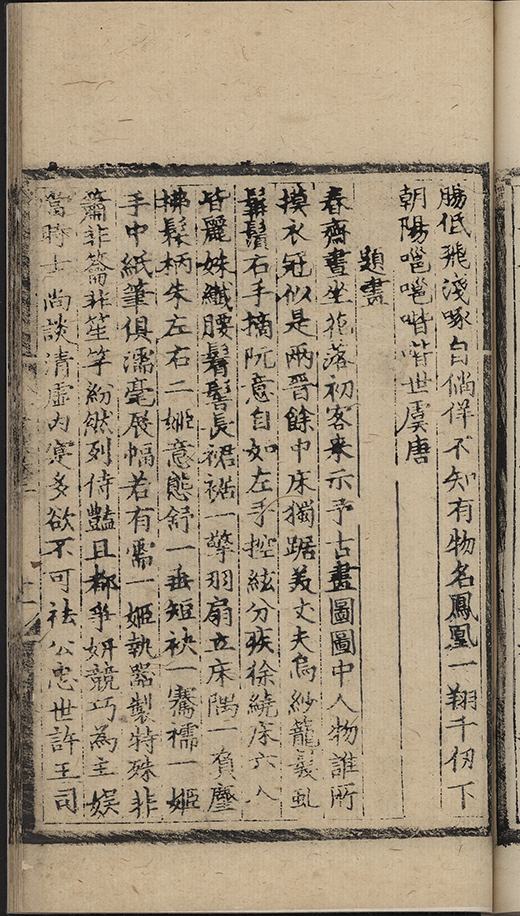 腸低飛淺啄自倘佯不知有物名鳳凰一翔千仞下
朝陽噰噰喈喈世虞唐
題畫
春齋晝坐花落初客来示予古畫圖圖中人物誰所
摸衣冠似是兩晉餘中床獨踞美丈夫烏紗籠髮虬
鬚右手摘阮意自如左手控絃分疾徐繞床六人
皆麗姝纖腰鬌髻長裙裾一擎羽扇立床隅一負麈
拂髹柄朱左右二姬意態舒一垂短袂一騫襦一姬
手中紙筆俱濡毫展幅若有需一姬執器製特殊非
簫非籥非笙竽紛然列侍豔且都爭妍競巧為主娱
當時士尚談清虛内寔多欲不可祛公忠世許王司